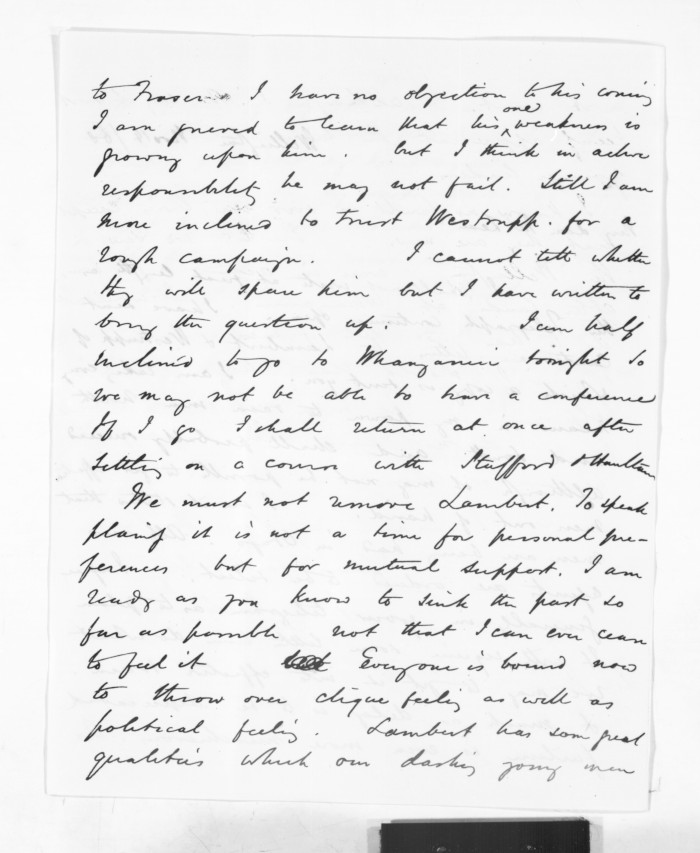 to Fraser. I have no objection to his coming
I am grieved to learn that his one weakness is
growing upon him. but I think in active
responsibility he may not fail. Still I am
more inclined to trust Westrupp. for a
rough campaign. I cannot tell whether
they will spare him but I have written to
bring the question up. I am half
inclined to go to Whanganui tonight so
we may not be able to have a conference
If I go I shall return at once after
settling on a course with Stafford & Haultain
We must not remove Lambert. To speak
plainly it is not a time for personal pre-
ferences but for mutual support. I am
ready as you know to sink the past so
far as possible not that I can ever cease
to feel it Everyone is bound now
to throw over clique feeling as well as
political feeling. Lambert has some great
qualities which our dashing young men